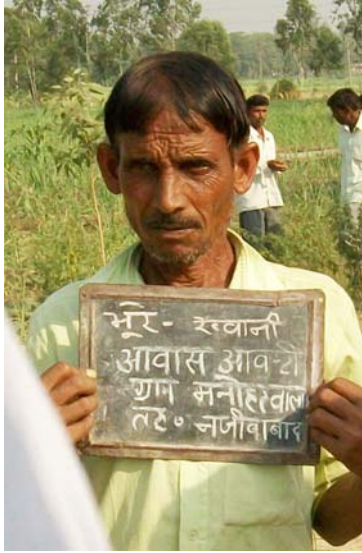 भूरे - रब्बानी
आवास आवंटी
ग्राम मनोहरवाला
तह० नजीबाबाद